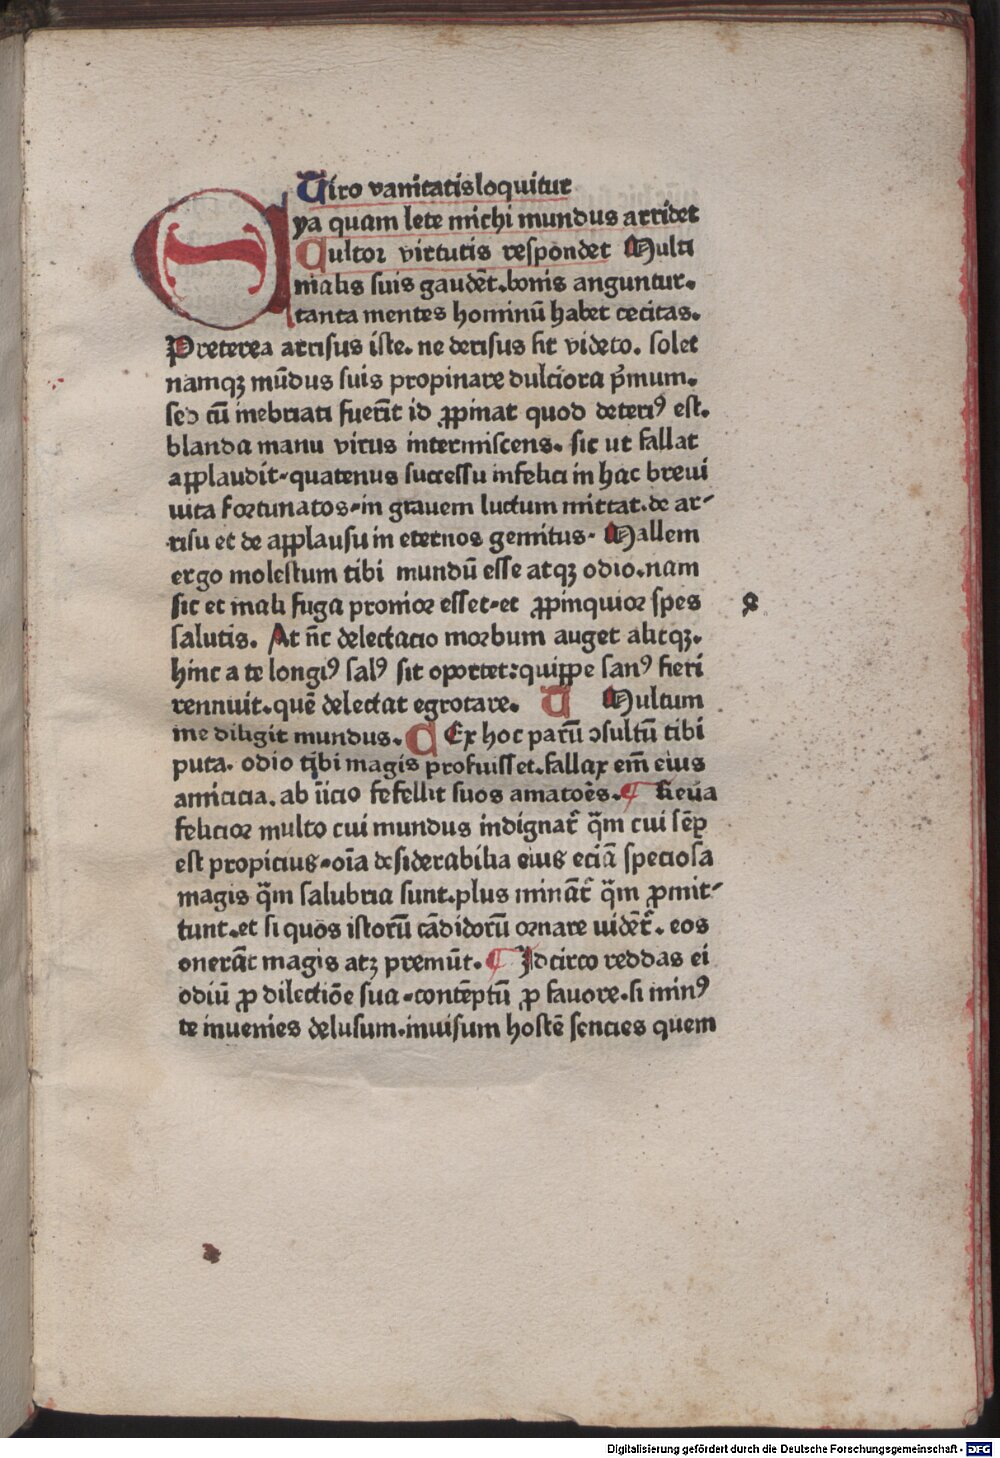 Tiro vanitatis loquitur
Eya quam lete michi mundus arridet
Cultor virtutis respondet Multi
malis suis gaudēt. bonis anguntur.
tanta mentes hominū habet cecitas.
Preterea arrisus iste. ne derisus sit video. solet
namqꝫ mūdus suis propinare dulciora p̄mum.
sed cū inebriati fuerīt id ꝓpinat quod deteriꝰ est.
blanda manu virus intermiscens. sic ut fallat
applaudit. quatenus successu infelici in hac brevi
vita fortunatos. in gravem luctum mittat. de ar-
risu et de applausu in eternos gemitus. Mallem
ergo molestum tibi mundū esse atqꝫ odio. nam
sic et mali fuga pronior esset. et ꝓpinquior spes
salutis. At nc̄ delectacio morbum auget alitqꝫ.
hinc a te longiꝰ salꝰ sit oportet: quippe sanꝰ fieri
rennuit. quē delectat egrotare. T Multum
me diligit mundus. C Ex hoc parū ↄsultū tibi
puta. odio tibi magis profuisset. fallax em̄ eius
amicicia. ab īicio fefellit suos amatoēs. ¶ Sieūa
felicior multo cui mundus indignat᷑ q̄m cui sēꝑ
est propicius. oīa desiderabilia eius eciā speciosa
magis q̄m salubria sunt. plus mināt᷑ q̄m ꝓmit-
tunt. et si quos istorū cādidorū ornare uidēt᷑. eos
onerāt magis atꝫ premūt. ¶ Idcirco reddas ei
odiū ꝓ dilectiōe sua. contēptū ꝓ favore. si minꝰ
te invenies delusum. invisum hostē sencies quem
Digitalisierung gefördert durch die Deutsche Forschungsgemeinschaft - DFG